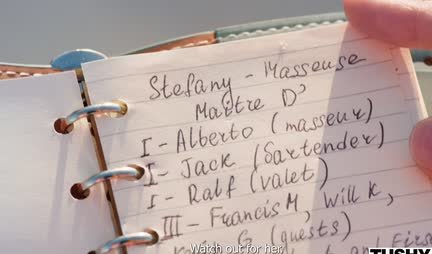 Stefany - Masseuse
Maitre D'
I - Alberto (masseur)
I - Jack (Bartender)
I - Ralf (valet)
III - Francis M, Will K,
G (guests)
Watch out for her.
and First
TUSHY